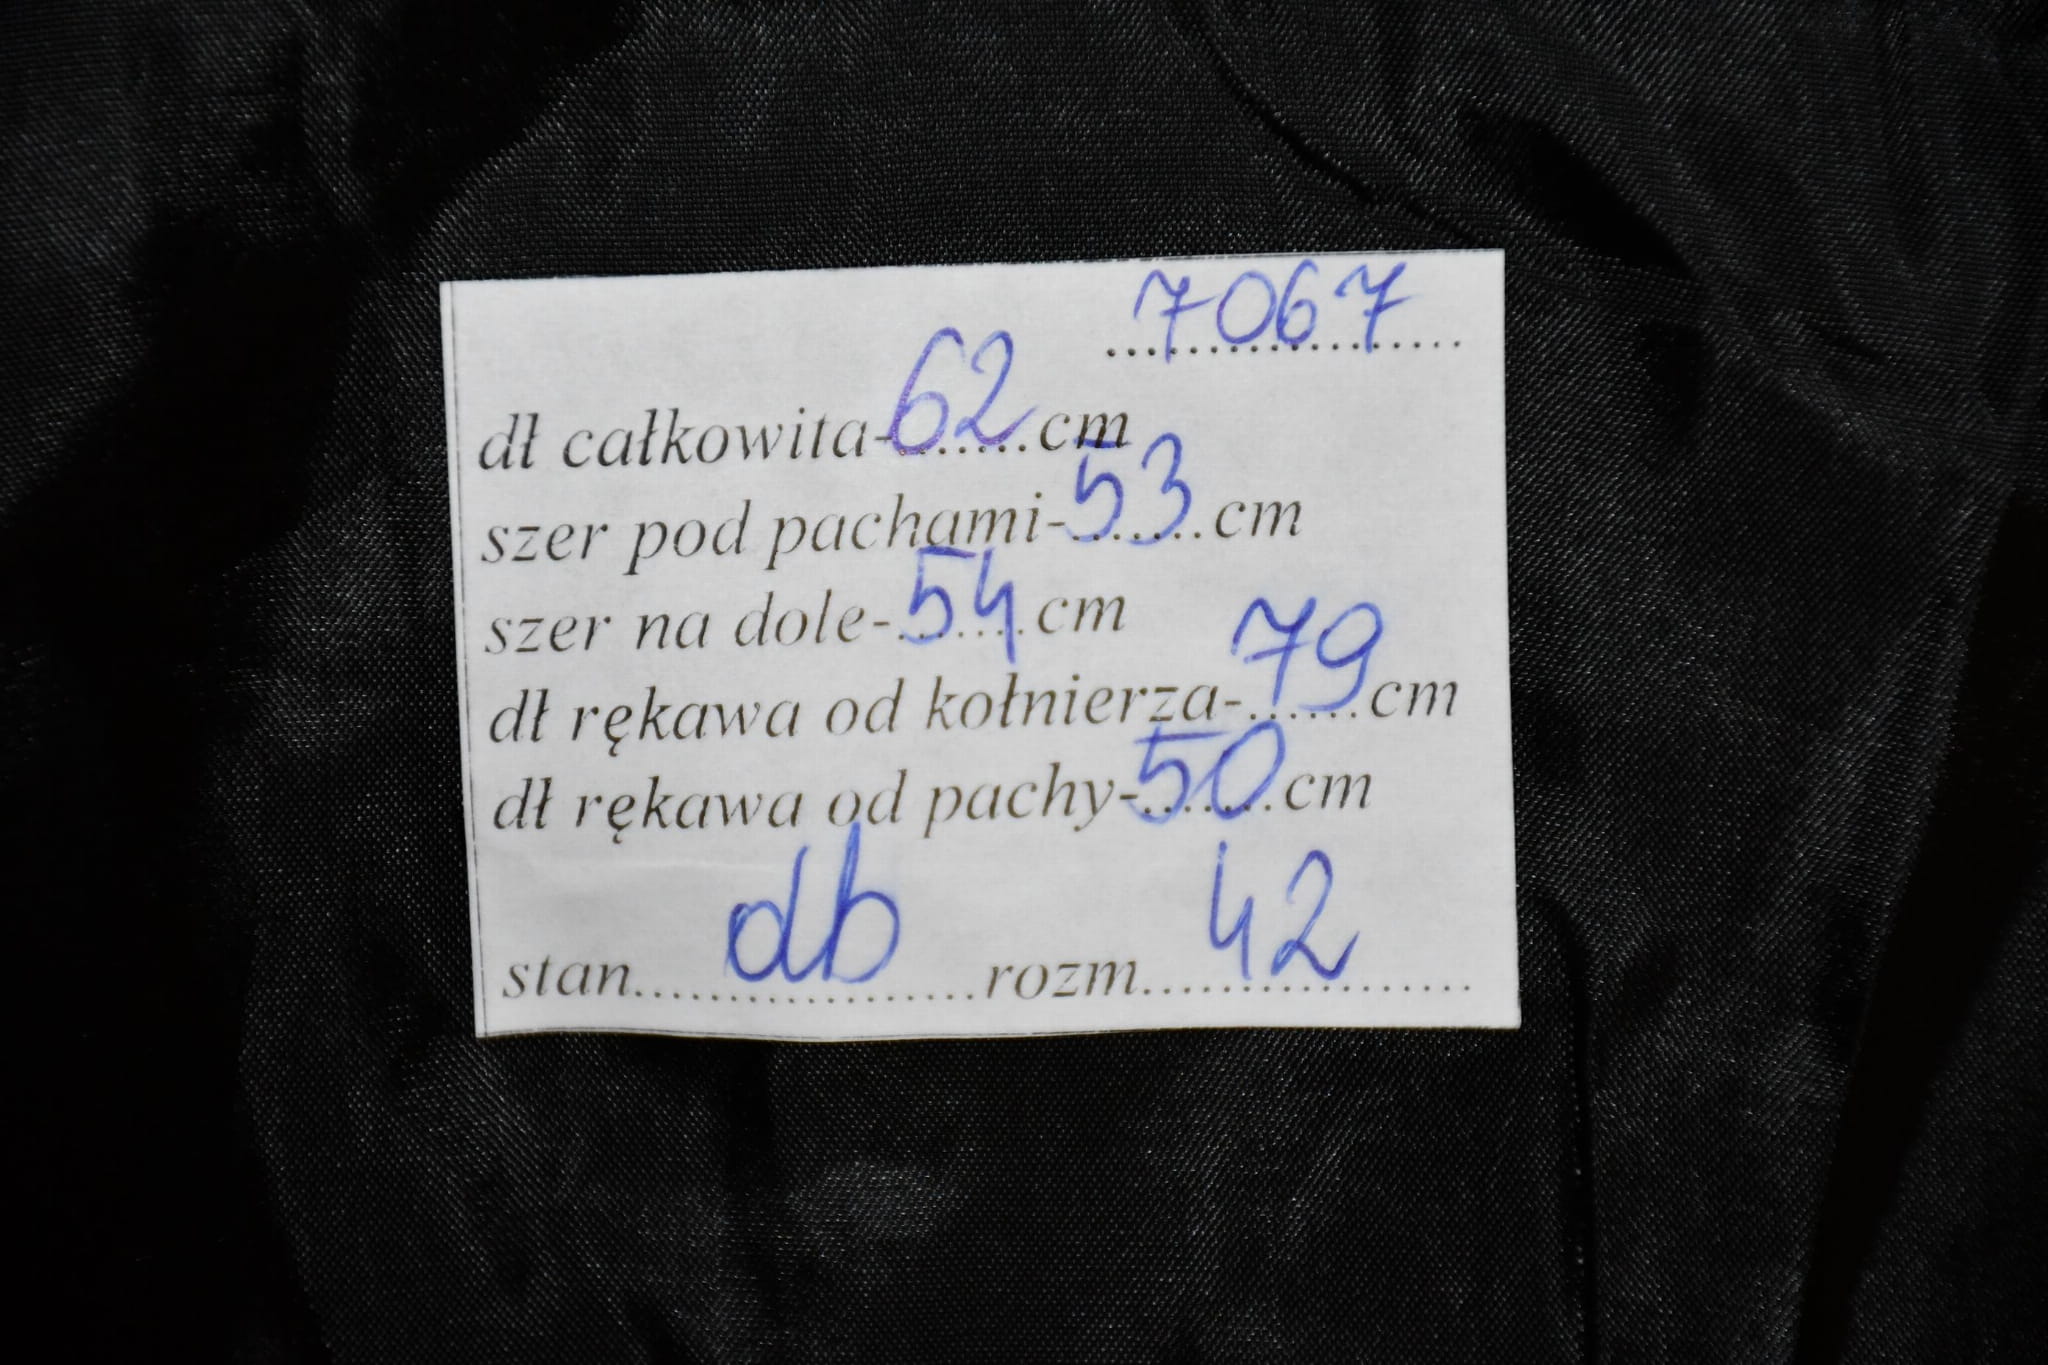 7067
dł całkowita-62cm
szer pod pachami-53cm
szer na dole-54cm
dł rękawa od kołnierza-79cm
dł rękawa od pachy-50cm
stan db rozm 42